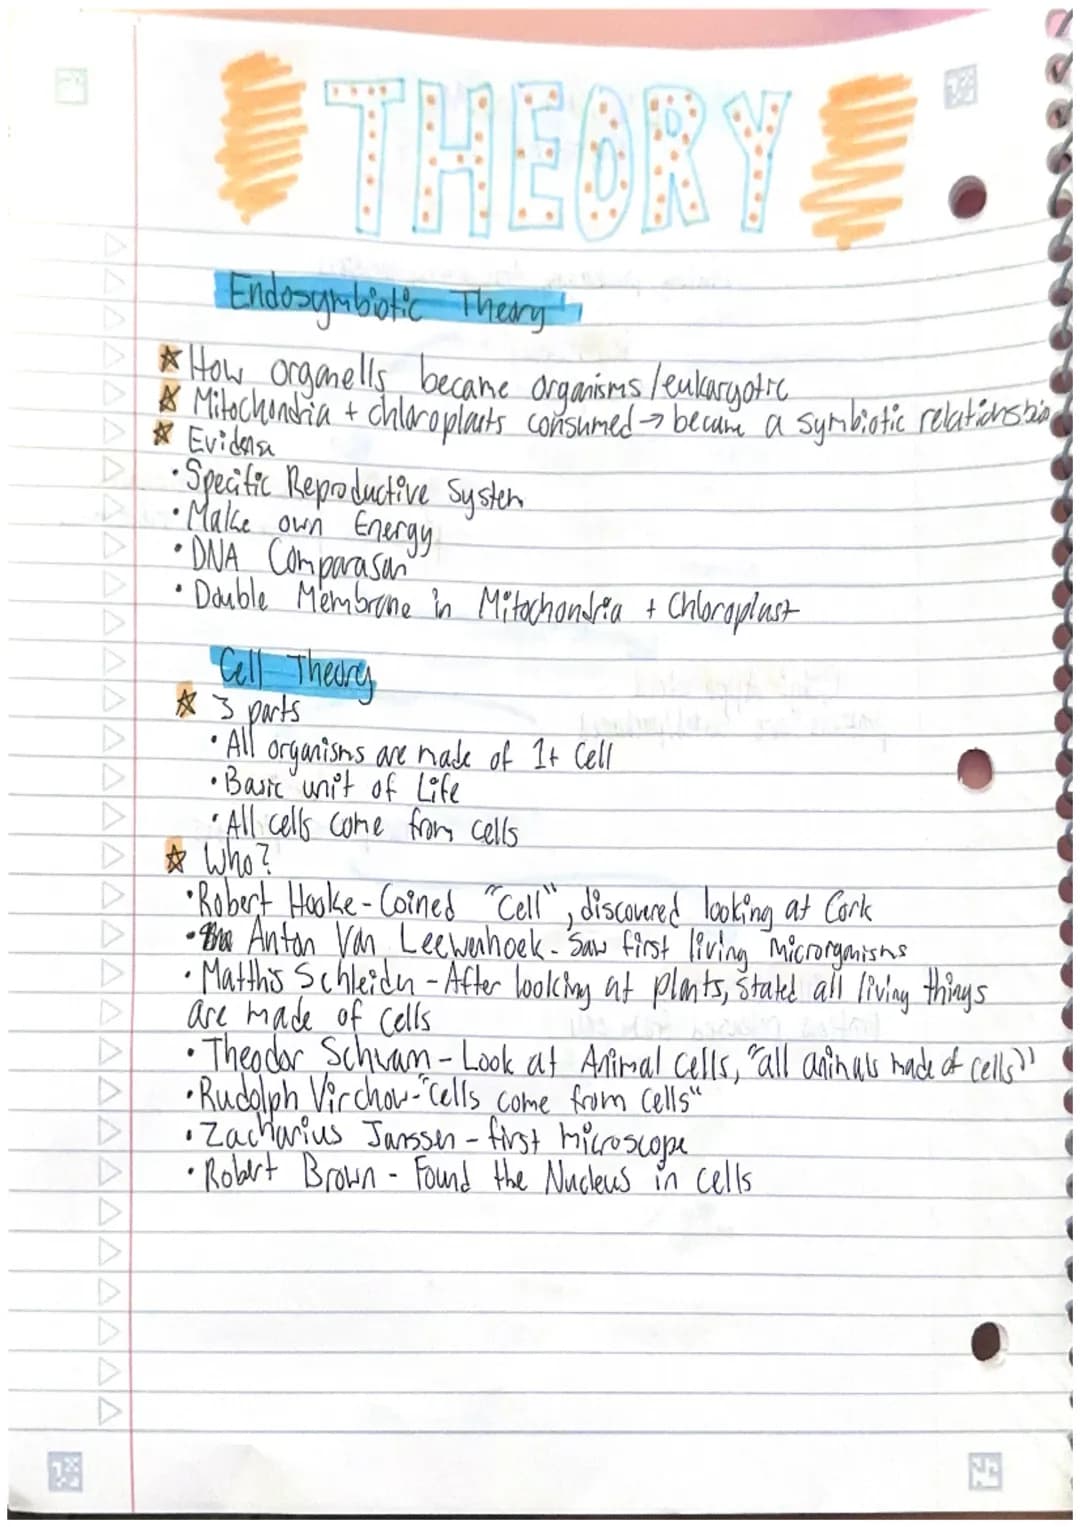 THEORY
Endosymbiotic Theory
How organells became organisms/eukaryotic
Mitochondria + chloroplasts consumed → became a symbiotic relationship
Evidense
• Specific Reproductive System
• Make own Energy
• DNA Comparasan
• Double Membrane in Mitochondria + Chloroplast
Cell Theory
3 parts
• All organisms are made of 1+ Cell
• Basic unit of Life
• All cells come from cells
Who?
• Robert Hooke - Coined "Cell", discovered looking at Cork
• Anton Van Leewenhoek - Saw first living Microrganisms
• Matthis Schleiden - After looking at plants, stated all living things
are made of cells
• Theodor Schwam - Look at Animal Cells, "all animals made of cells"
• Rudolph Virchow - "Cells come from cells"
• Zacharius Janssen - first microscope
• Robert Brown - Found the Nucleus in cells